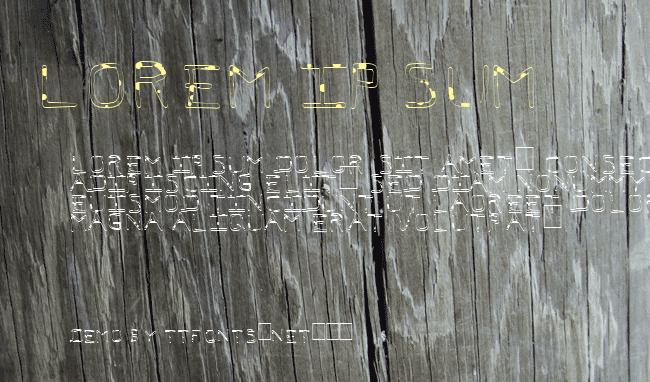 LOREM IPSUM
LOREM IPSUM DOLOR SIT AMET□ CONSET
ADIPISCING ELIT□ SED DIAM NONUMMY
EUISMOD TINCIDUNT UT LAOREET DOLOR
MAGNA ALIQUAM ERAT VOLUTPAT□
DEMO BY TTFONTS□NET□□□